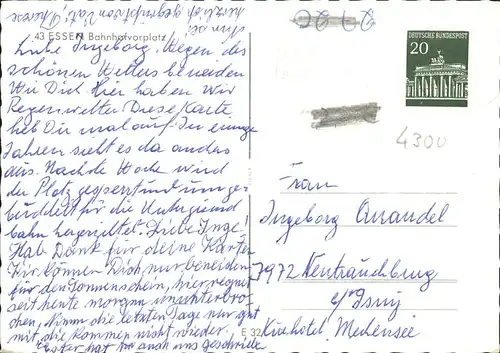 Dir sei
herzlich gegrüßt von Kati, Therese
43 ESSEN Bahnhofvorplatz
Liebe Ingeborg, Wegen des
schönen Wetters beneiden
Wir Dich! Hier haben Wir
Regenwetter Diese Karte
heb Dir mal auf. In einigen
Jahren sieht es da anders
aus. Nächste Woche wird
der Platz gesperrt und umge-
buddelt für die Untergrund
bahn hergerichtet. Liebe Inge!
Hab Dank für deine Karte.
Wir können Dich nur beneiden
für den Sonnenschein, hier regnet
seit heute morgen ununterbro-
chen, Nimm die letzten Tage nur gut
mit die kommen nicht wieder.
hat an uns geschrieben
DEUTSCHE BUNDESPOST
20
4300
Frau
Ingeborg Quandel
7972 Neutrauchburg
b/ Isny
Kurhotel Mechensee
E 32